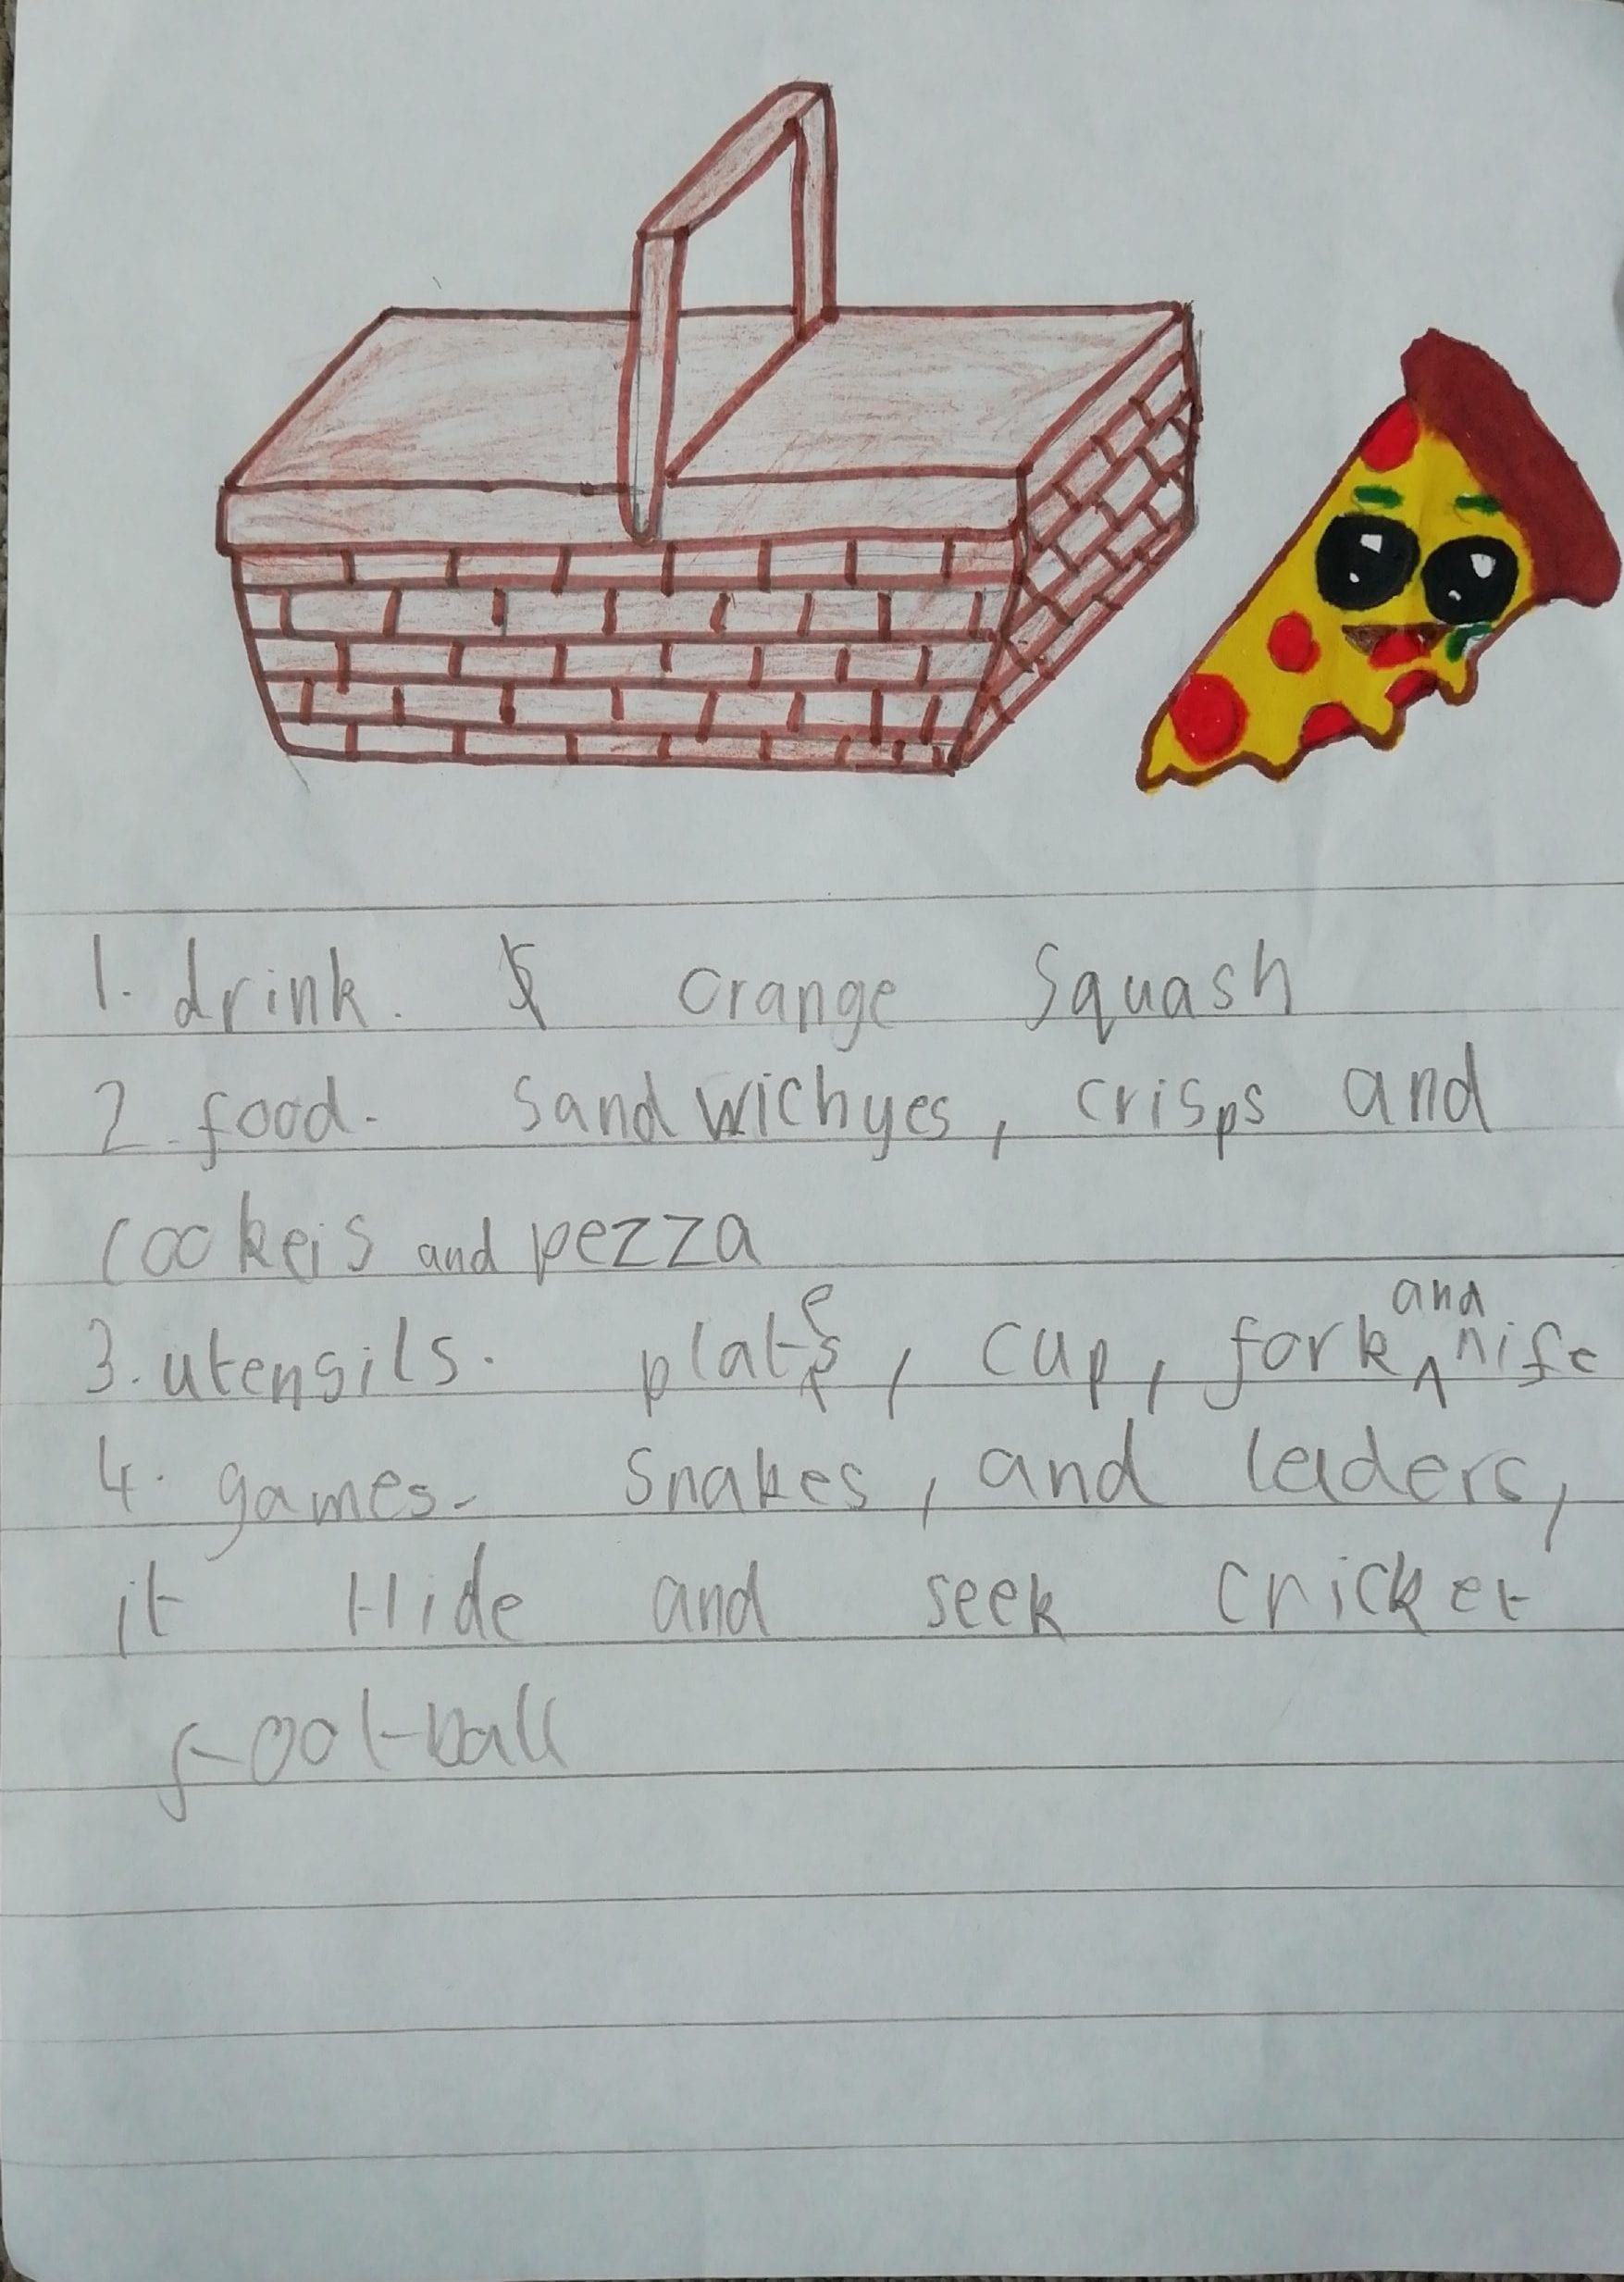 1. drink. orange squash
2. food. sandwichyes, crisps and
cookeis and pezza
3. utensils. plates, cup, fork and nife
4. games. snakes, and leders,
it Hide and seek cricket
football